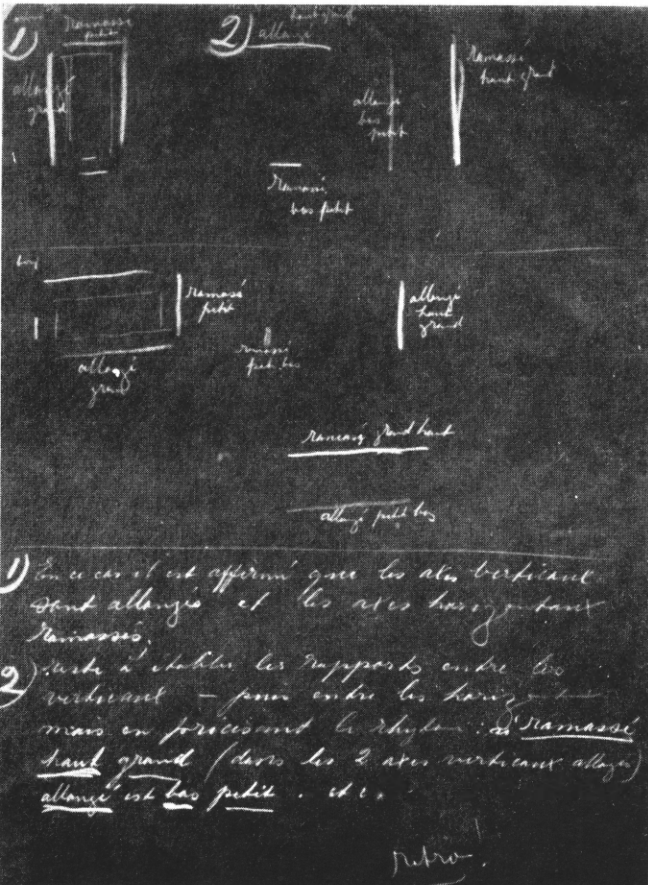 1) ramassé
petit
2) haut grand
allongé
allongé
grand
ramassé
haut grand
allongé
bas
petit
ramassé
bas petit
ramassé
petit
allongé
haut
grand
ramassé
petit bas
allongé
grand
ramassé grand haut
allongé petit bas
1) En ce cas il est affirmé que les axes verticaux
sont allongés et les axes horizontaux
ramassés.
2) reste à établir les rapports entre les
verticaux — puis entre les
mais en précisant le rhythme : ramassé
haut grand (dans les 2 axes verticaux allongés)
allongé est bas petit . etc.
retro !